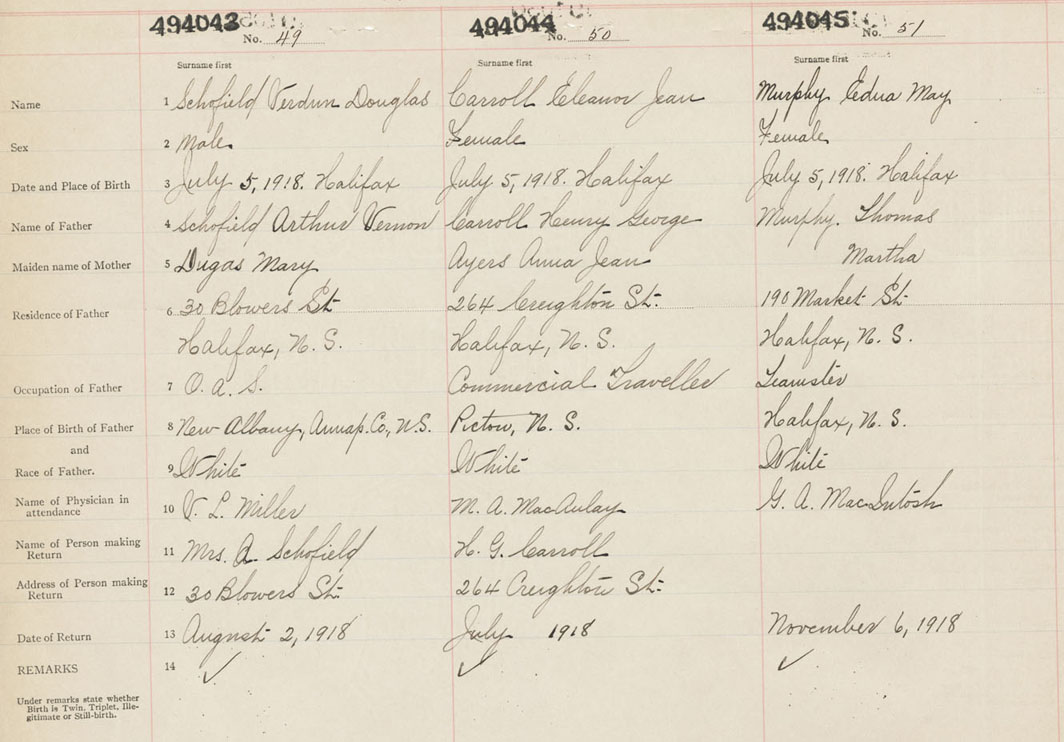 494043 494044 494045
No. 49 No. 50 No. 51
Surname first Surname first Surname first
Name 1 Schofield Verdun Douglas Carroll Eleanor Jean Murphy Edna May
Sex 2 Male Female Female
Date and Place of Birth 3 July 5, 1918. Halifax July 5, 1918. Halifax July 5, 1918. Halifax
Name of Father 4 Schofield Arthur Vernon Carroll Henry George Murphy. Thomas
Maiden name of Mother 5 Dugas Mary Ayers Anna Jean Martha
Residence of Father 6 30 Blowers St. 264 Creighton St. 190 Market St.
Halifax, N. S. Halifax, N. S. Halifax, N. S.
Occupation of Father 7 O. a. S. Commercial Traveller Teamster
Place of Birth of Father 8 New Albany, Annap. Co., N.S. Pictou, N. S. Halifax, N. S.
and
Race of Father. 9 White White White
Name of Physician in attendance 10 V. L. Miller M. A. MacAulay G. A. MacIntosh
Name of Person making Return 11 Mrs. A. Schofield H. G. Carroll
Address of Person making Return 12 30 Blowers St. 264 Creighton St.
Date of Return 13 August 2, 1918 July 1918 November 6, 1918
REMARKS 14 ✓ ✓ ✓
Under remarks state whether
Birth is Twin, Triplet, Ille-
gitimate or Still-birth.